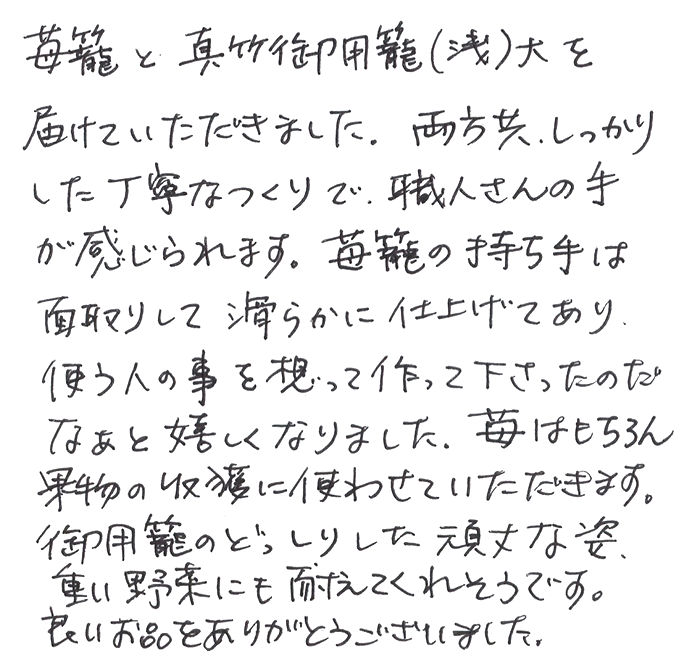 苺籠と真竹御用籠(浅)大を
届けていただきました。両方共、しっかり
した丁寧なつくりで、職人さんの手
が感じられます。苺籠の持ち手は
面取りして滑らかに仕上げてあり、
使う人の事を想って作って下さったのだ
なぁと嬉しくなりました。苺はもちろん
果物の収獲に使わせていただきます。
御用籠のどっしりした頑丈な姿、
重い野菜にも耐えてくれそうです。
良いお品をありがとうございました。